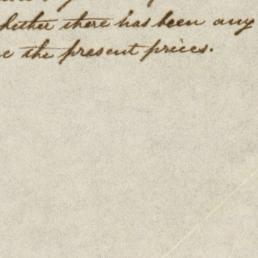 whether there has been any
the present prices.